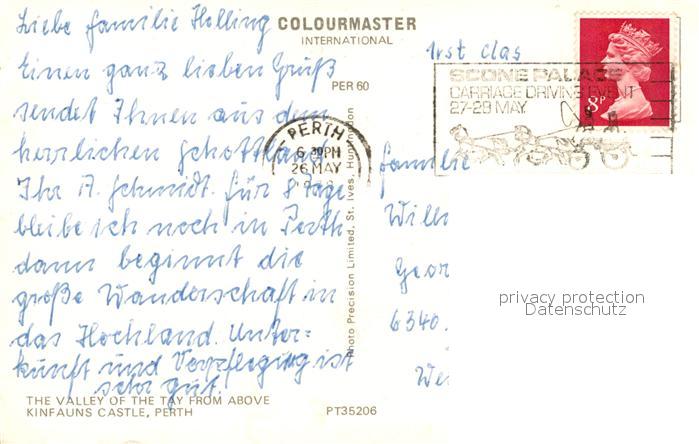 Liebe Familie Helling
Einen ganz lieben Gruß
sendet Ihnen aus dem
herrlichen Schottland
Ihr A. Schmidt. Für 8 Tage
bleibe ich noch in Perth
dann beginnt die
große Wanderschaft in
das Hochland. Unter=
kunft und Verpflegung ist
sehr gut.
COLOURMASTER
INTERNATIONAL
PER 60
THE VALLEY OF THE TAY FROM ABOVE
KINFAUNS CASTLE, PERTH
PT35206
Photo Precision Limited, St. Ives, Huntingdon
PERTH
6 30PM
26 MAY
1rst clas
SCONE PALACE
CARRIAGE DRIVING EVENT
27-29 MAY
8P
Familie
Will
Geor
6340.
We
privacy protection
Datenschutz